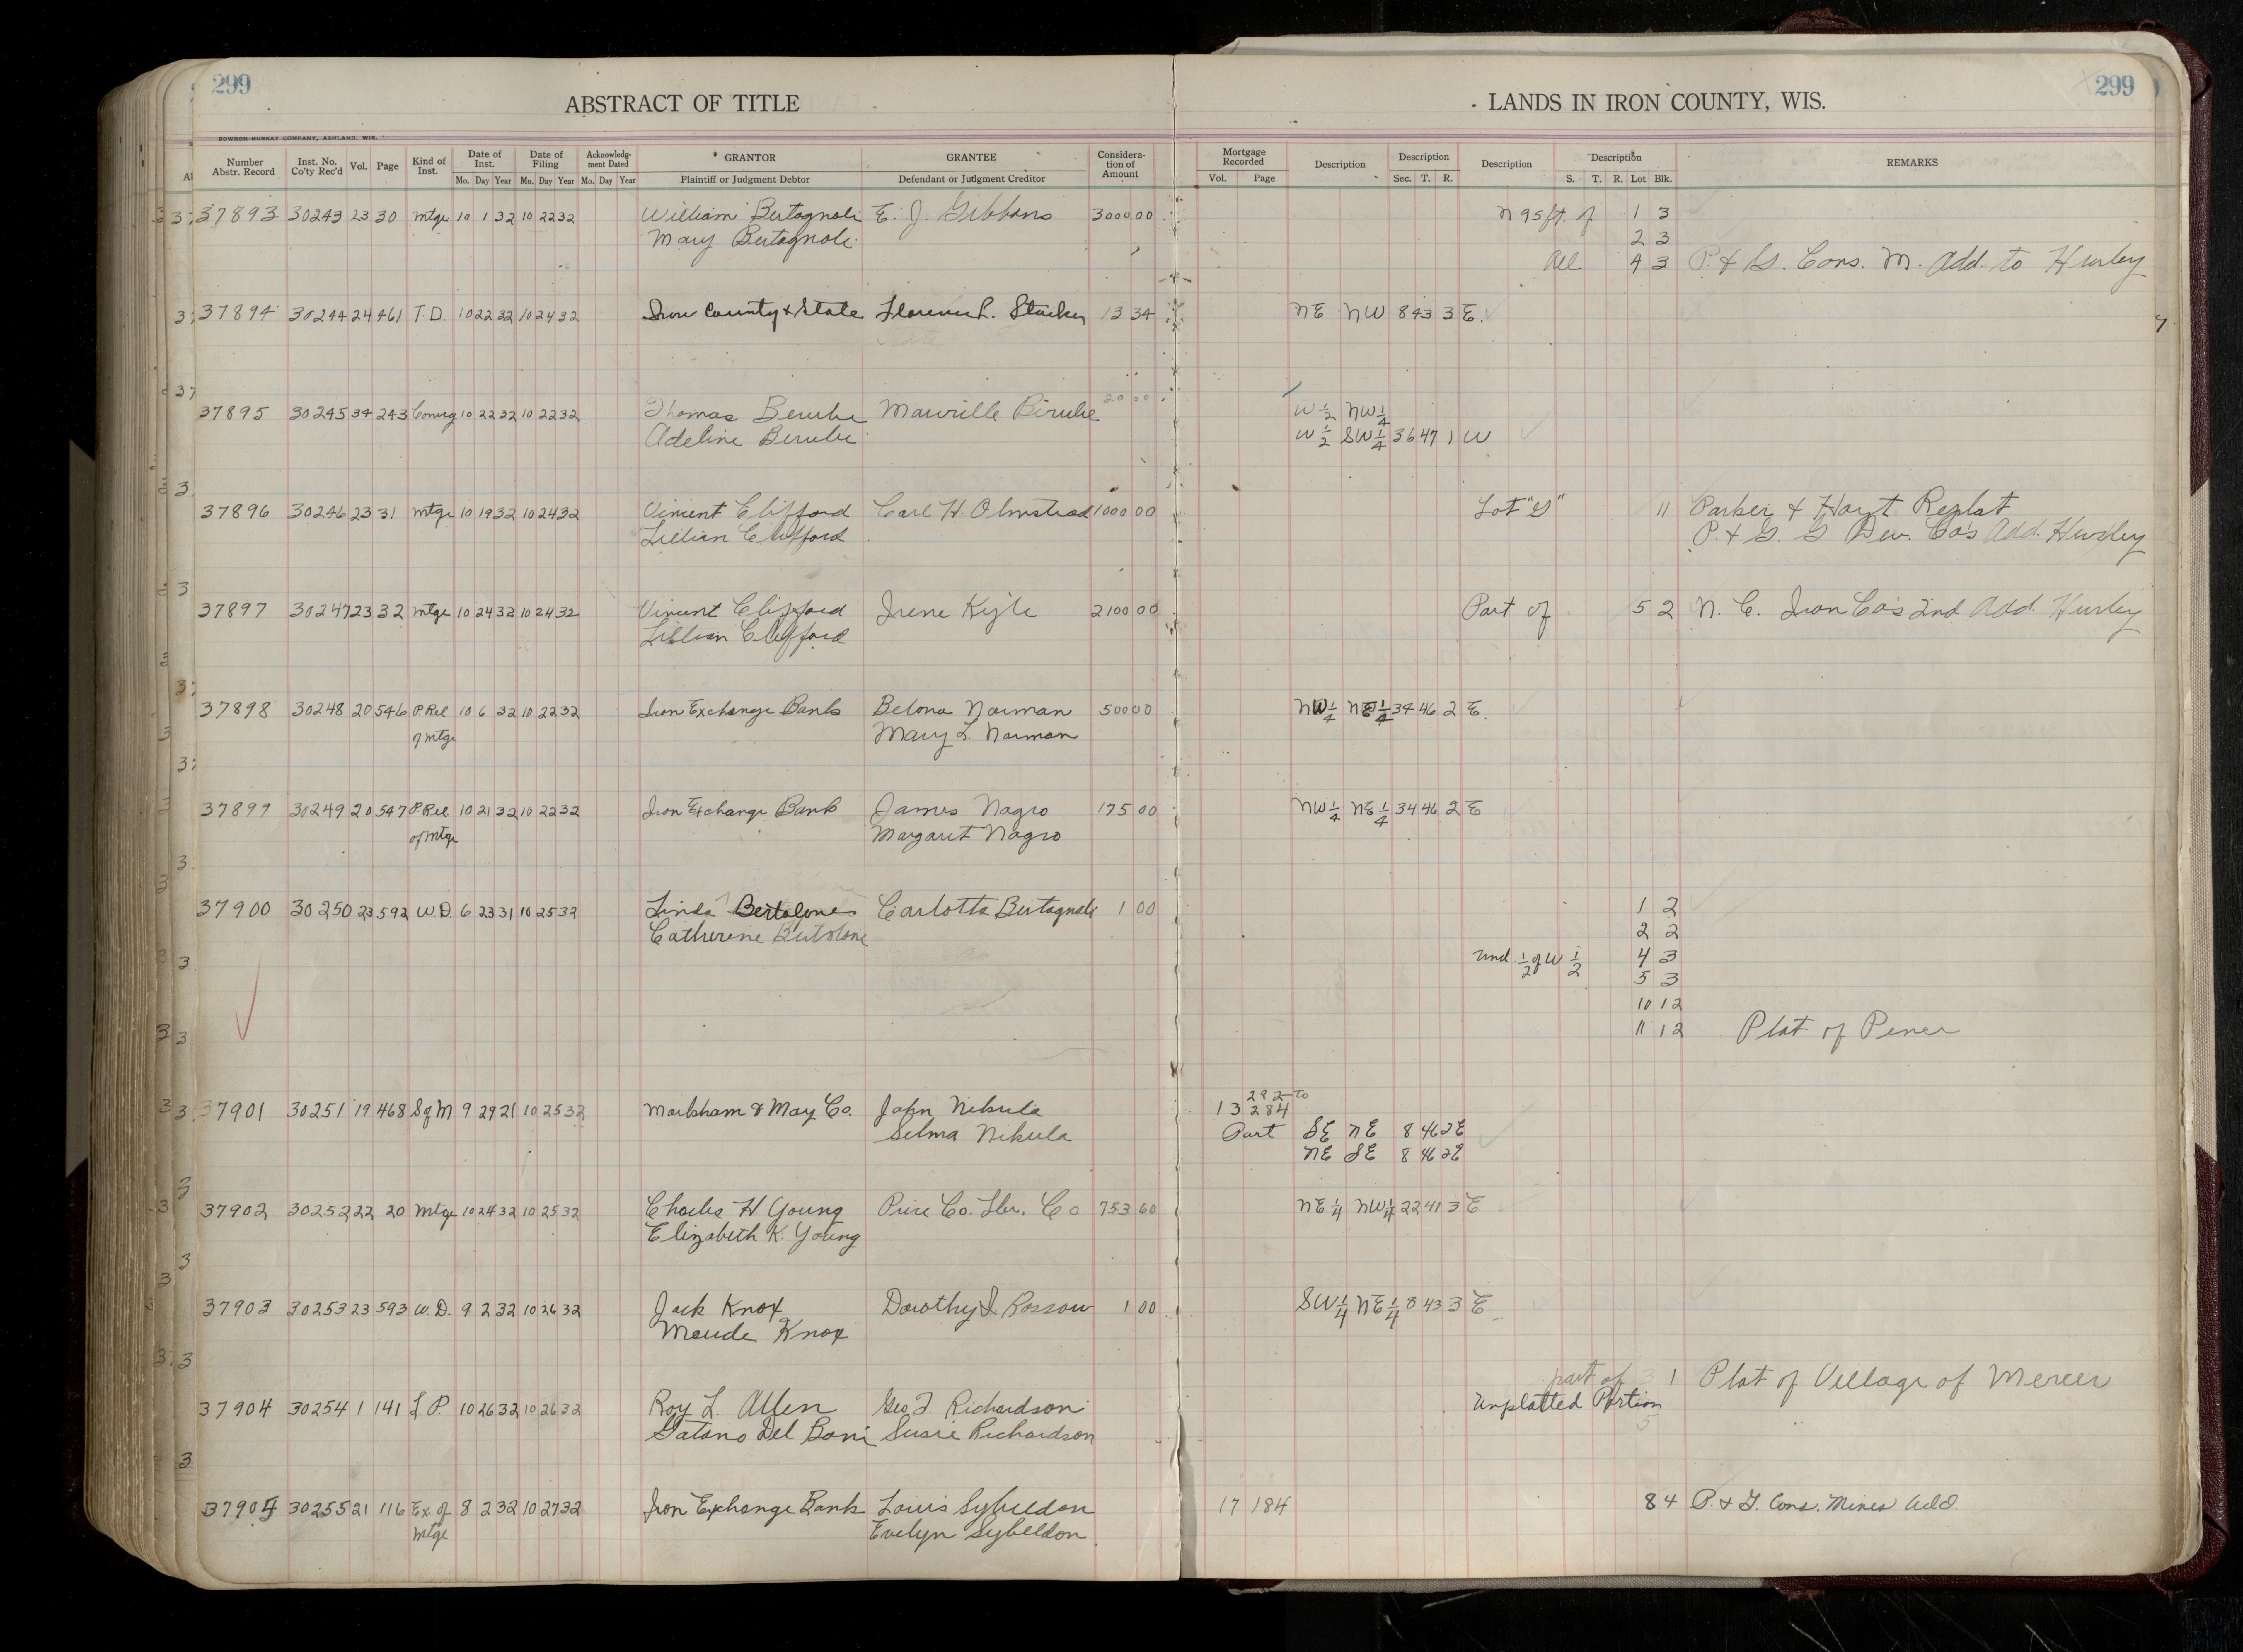 299
ABSTRACT OF TITLE
LANDS IN IRON COUNTY, WIS.
299
BOWRON-MURRAY COMPANY, ASHLAND, WIS.
Number Abstr. Record Inst. No. Co'ty Rec'd Vol. Page Kind of Inst. Date of Inst. Mo. Day Year Date of Filing Mo. Day Year Acknowledg-ment Dated Mo. Day Year GRANTOR Plaintiff or Judgment Debtor GRANTEE Defendant or Judgment Creditor Considera-tion of Amount Mortgage Recorded Vol. Page Description Description Sec. T. R. Description Description S. T. R. Lot Blk. REMARKS
37893 30243 23 30 Mtge 10 1 32 10 22 32 William Bertagnoli E. J. Gibbons 3000 00 N 95 ft. of 1 3
Mary Bertagnoli 2 3
All 4 3 P. & G. Cons. M. Add. to Hurley
37894 30244 24 461 T.D. 10 22 32 10 24 32 Iron County & State Florence L. 13 34 NE NW 8 43 3 E.
37895 30245 34 243 Convey 10 22 32 10 22 32 Thomas Berube Maurille Birube 20 00 W 1/2 NW 1/4
Adeline Berube W 1/2 SW 1/4 36 47 1 W
37896 30246 23 31 Mtge 10 19 32 10 24 32 Vincent Clifford Carl H. Olmstead 1000 00 Lot "G" 11 Parker & Hoyt Replat
Lillian Clifford P. & G. G Dev. Co's Add. Hurley
37897 30247 23 32 Mtge 10 24 32 10 24 32 Vincent Clifford Irene Kyle 2100 00 Part of 5 2 N. C. Iron Co's 2nd Add. Hurley
Lillian Clifford
37898 30248 20 546 P. Rel 10 6 32 10 22 32 Iron Exchange Bank Belona Norman 500 00 NW 1/4 NE 1/4 34 46 2 E.
of Mtge Mary L. Norman
37899 30249 20 547 P. Rel 10 21 32 10 22 32 Iron Exchange Bank James Nagro 175 00 NW 1/4 NE 1/4 34 46 2 E
of Mtge Margaret Nagro
37900 30250 23 592 W.D. 6 23 31 10 25 32 Linda Bertolone Carlotta Bertagnoli 1 00 1 2
Catherine Bertolone 2 2
Und. 1/2 of W 1/2 4 3
5 3
10 12
11 12 Plat of Pence
37901 30251 19 468 S of M 9 29 21 10 25 32 Markham & May Co. John Nikula 13 282 to 284
Selma Nikula Part SE NE 8 46 2 E
NE SE 8 46 2 E
37902 30252 22 20 Mtge 10 24 32 10 25 32 Charles H Young Price Co. Lbr. Co 753 60 NE 1/4 NW 1/4 22 41 3 E
Elizabeth K. Young
37903 30253 23 593 W.D. 9 2 32 10 26 32 Jack Knox Dorothy I. Rossow 1 00 SW 1/4 NE 1/4 8 43 3 E
Maude Knox
part of 3 1 Plat of Village of Mercer
37904 30254 1 141 L.P. 10 26 32 10 26 32 Roy L. Allen Geo. F. Richardson Unplatted Portion
Gatano Del Boni Susie Richardson 5
37905 30255 21 116 Ex. of 8 2 32 10 27 32 Iron Exchange Bank Louis Sybeldon 17 184 8 4 P. & G. Cons. Mines Add.
Mtge Evelyn Sybeldon